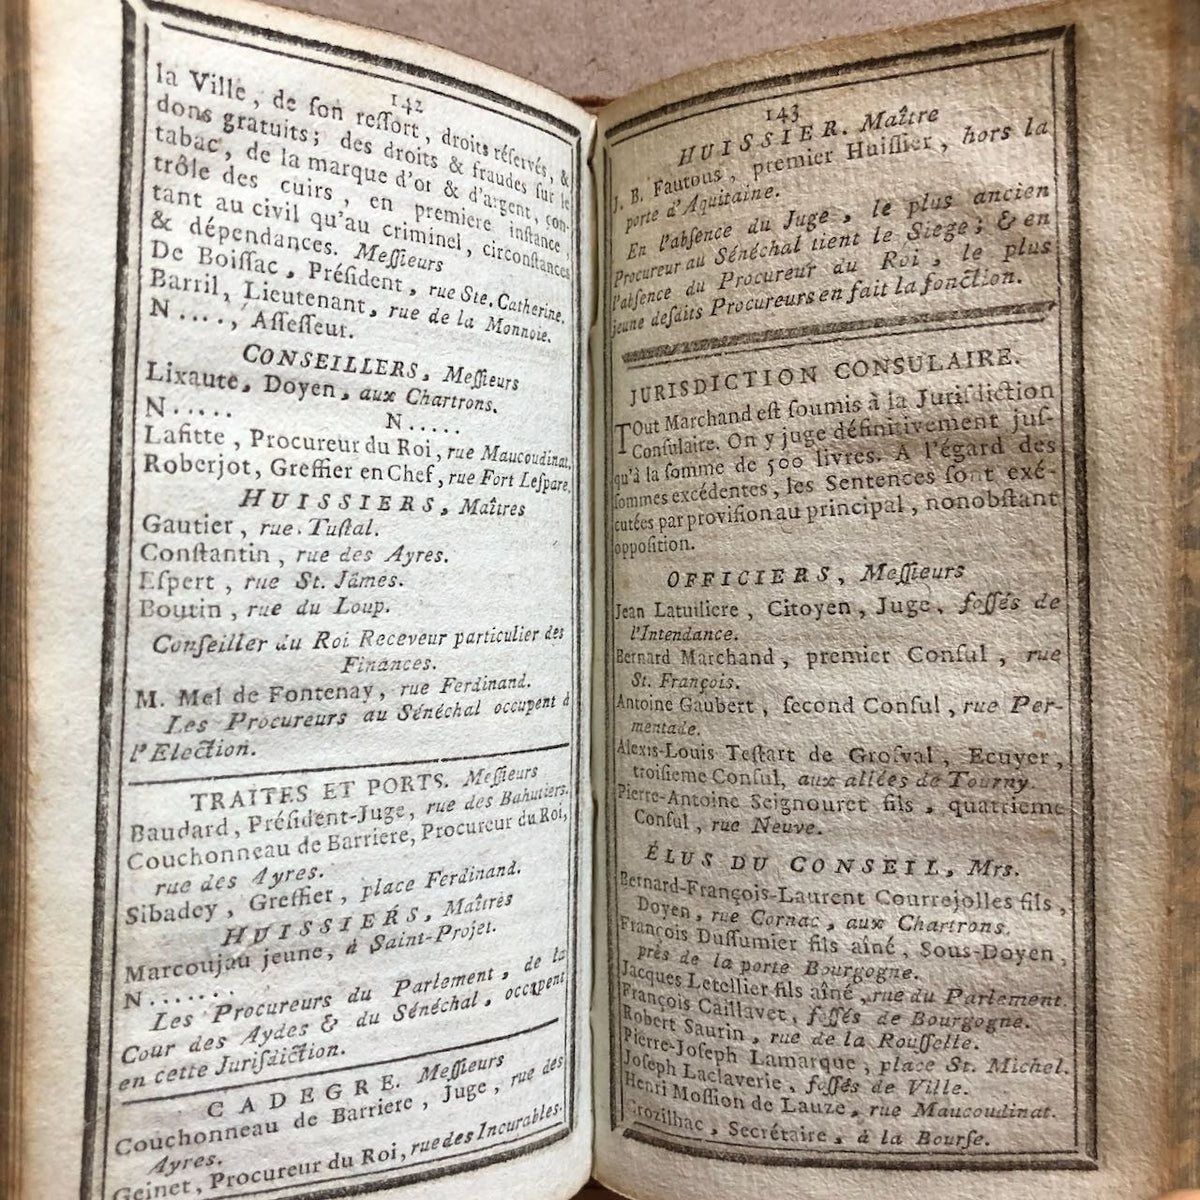 142
la Ville, de ſon reſſort, droits réſervés, &
dons gratuits; des droits & fraudes ſur le
tabac, de la marque d'or & d'argent, con-
trôle des cuirs, en premiere inſtance,
tant au civil qu'au criminel, circonſtances
& dépendances. Meſſieurs
De Boiſſac, Préſident, rue Ste. Catherine.
Barril, Lieutenant, rue de la Monnoie.
N...., Aſſeſſeur.
CONSEILLERS, Meſſieurs
Lixaute, Doyen, aux Chartrons.
N..... N.....
Lafitte, Procureur du Roi, rue Maucoudinat.
Roberjot, Greffier en Chef, rue Fort Leſpare.
HUISSIERS, Maîtres
Gautier, rue Tuſtal.
Conſtantin, rue des Ayres.
Eſpert, rue St. Jâmes.
Boutin, rue du Loup.
Conſeiller du Roi Receveur particulier des
Finances.
M. Mel de Fontenay, rue Ferdinand.
Les Procureurs au Sénéchal occupent à
l'Election.
TRAITES ET PORTS. Meſſieurs
Baudard, Préſident-Juge, rue des Bahutiers.
Couchonneau de Barriere, Procureur du Roi,
rue des Ayres.
Sibadey, Greffier, place Ferdinand.
HUISSIERS, Maîtres
Marcoujau jeune, à Saint-Projet.
N.......
Les Procureurs du Parlement, de la
Cour des Aydes & du Sénéchal, occupent
en cette Juriſdiction.
CADEGRE. Meſſieurs
Couchonneau de Barriere, Juge, rue des
Ayres.
Geinet, Procureur du Roi, rue des Incurables.
143
HUISSIER. Maître
J. B. Fautous, premier Huiſſier, hors la
porte d'Aquitaine.
En l'abſence du Juge, le plus ancien
Procureur au Sénéchal tient le Siege; & en
l'abſence du Procureur du Roi, le plus
jeune deſdits Procureurs en fait la fonction.
JURISDICTION CONSULAIRE.
TOut Marchand eſt ſoumis à la Juriſdiction
Conſulaire. On y juge définitivement juſ-
qu'à la ſomme de 500 livres. A l'égard des
ſommes excédentes, les Sentences ſont exé-
cutées par proviſion au principal, nonobſtant
oppoſition.
OFFICIERS, Meſſieurs
Jean Latuiliere, Citoyen, Juge, foſſés de
l'Intendance.
Bernard Marchand, premier Conſul, rue
St. François.
Antoine Gaubert, ſecond Conſul, rue Per-
mentade.
Alexis-Louis Teſtart de Groſval, Ecuyer,
troiſieme Conſul, aux allées de Tourny.
Pierre-Antoine Seignouret fils, quatrieme
Conſul, rue Neuve.
ÉLUS DU CONSEIL, Mrs.
Bernard-François-Laurent Courrejolles fils,
Doyen, rue Cornac, aux Chartrons.
François Duſſumier fils aîné, Sous-Doyen,
près de la porte Bourgogne.
Jacques Letellier fils aîné, rue du Parlement.
François Caillavet, foſſés de Bourgogne.
Robert Saurin, rue de la Rouſſelle.
Pierre-Joſeph Lamarque, place St. Michel.
Joſeph Laclaverie, foſſés de Ville.
Henri Moſſion de Lauze, rue Maucoudinat.
Crozilhac, Secrétaire, à la Bourſe.